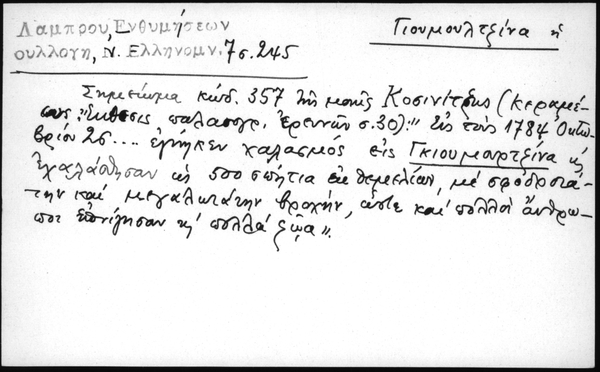 Λαμπρου, Ενθυμήσεων
συλλογη, Ν. Ελληνομν. 7σ.245
Γιουμουλτζίνα ή
Σημείωμα κώδ. 357 της μονής Κοσινίτσης (κεραμέ-
ως: "Έκθεσις παλαιογρ. ἐρευνῶν σ.30): "Εἰς τούς 1784 Ὀκτω-
βρίου 26.... ἐγίνηκεν χαλασμός εἰς Γκιουμουρτζίνα κ'
ἐχαλάσθησαν ὡς 500 σπήτια ἐκ θεμελίων, μέ σφοδροτά-
την καί μεγαλωτάτην βροχήν, ὥστε καί πολλοί ἄνθρω-
ποι ἐπνίγησαν κ' πολλά ζῶα".